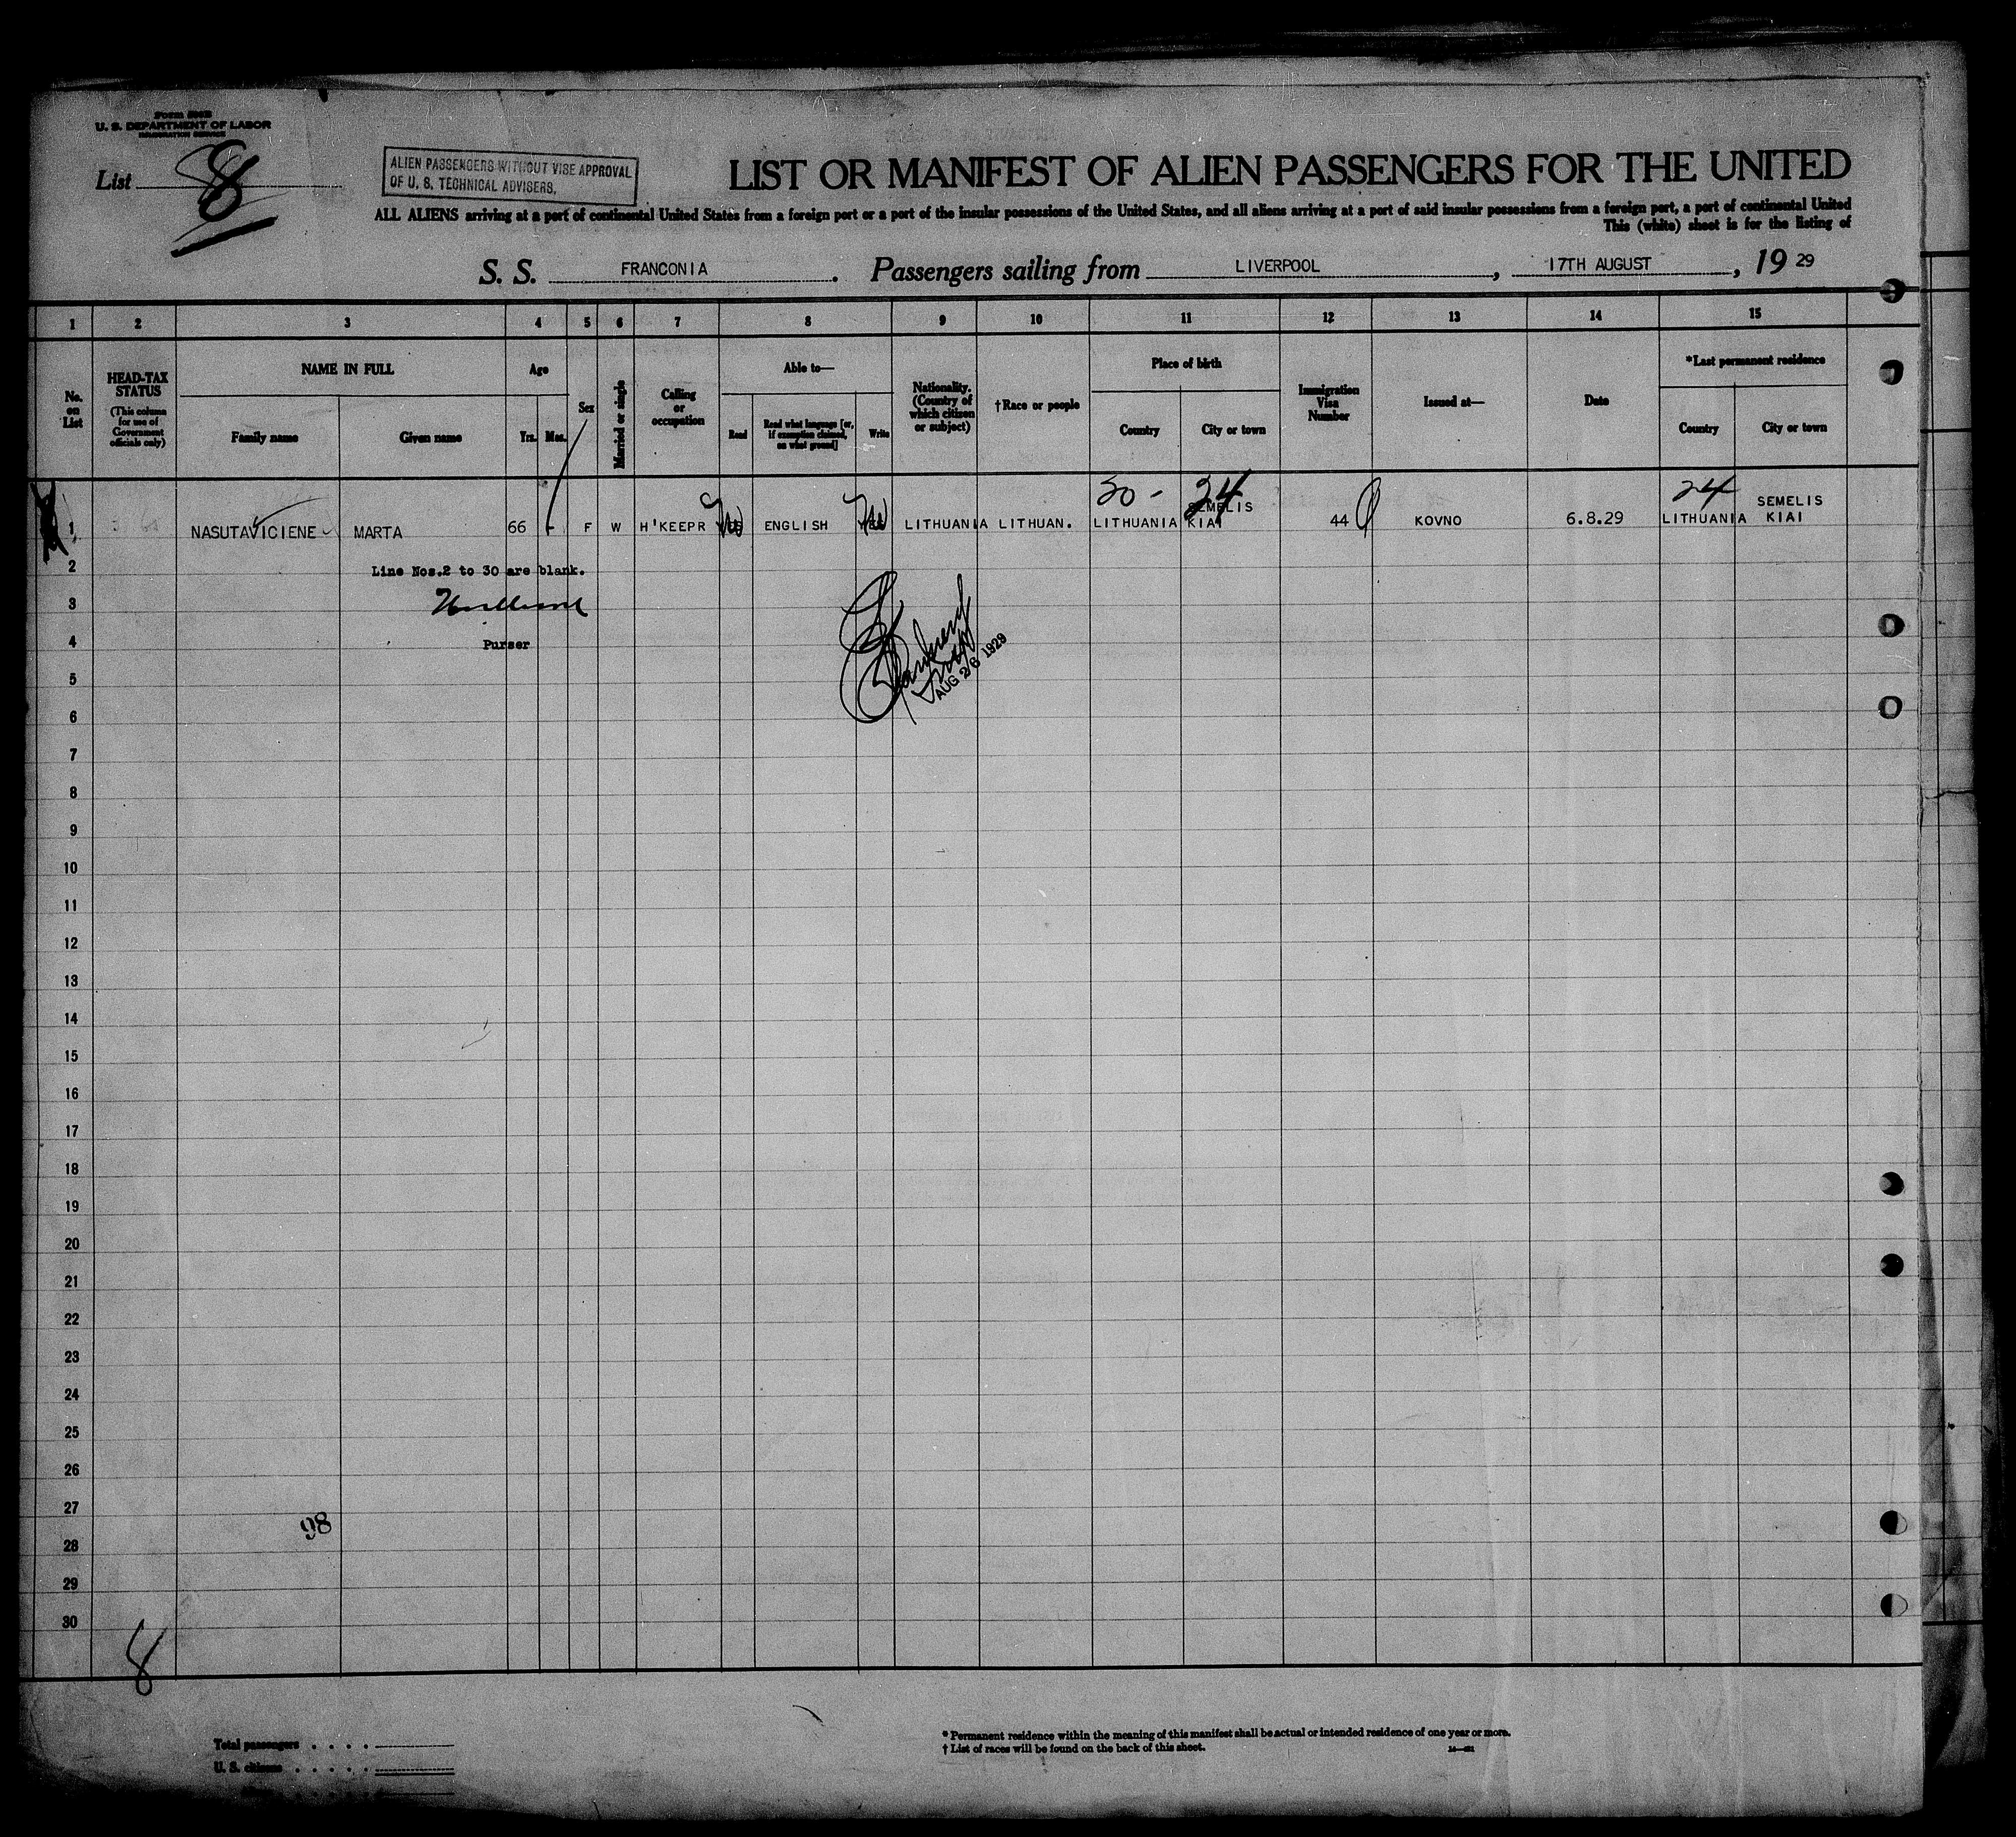 Form 500B
U. S. DEPARTMENT OF LABOR
IMMIGRATION SERVICE
List 8
ALIEN PASSENGERS WITHOUT VISE APPROVAL
OF U. S. TECHNICAL ADVISERS.
LIST OR MANIFEST OF ALIEN PASSENGERS FOR THE UNITED
ALL ALIENS arriving at a port of continental United States from a foreign port or a port of the insular possessions of the United States, and all aliens arriving at a port of said insular possessions from a foreign port, a port of continental United
This (white) sheet is for the listing of
S. S. FRANCONIA. Passengers sailing from LIVERPOOL, 17TH AUGUST, 19 29
1 2 3 4 5 6 7 8 9 10 11 12 13 14 15
No. on List
HEAD-TAX STATUS
(This column for use of Government officials only)
NAME IN FULL
Family name
Given name
Age
Yrs. Mos.
Sex
Married or single
Calling or occupation
Able to—
Read
Read what language [or, if exemption claimed, on what ground]
Write
Nationality. (Country of which citizen or subject)
†Race or people
Place of birth
Country
City or town
Immigration Visa Number
Issued at—
Date
*Last permanent residence
Country
City or town
30 - 24 24
1 NASUTAVICIENE MARTA 66 - F W H'KEEPR YES ENGLISH YES LITHUANIA LITHUAN. LITHUANIA SEMELIS KIAI 44 KOVNO 6.8.29 LITHUANIA SEMELIS KIAI
2
Line Nos.2 to 30 are blank.
3
4
Purser
AUG 26 1929
5
6
7
8
9
10
11
12
13
14
15
16
17
18
19
20
21
22
23
24
25
26
27
98
28
29
30
8
Total passengers . . . .
U. S. citizens . . . . .
* Permanent residence within the meaning of this manifest shall be actual or intended residence of one year or more.
† List of races will be found on the back of this sheet.